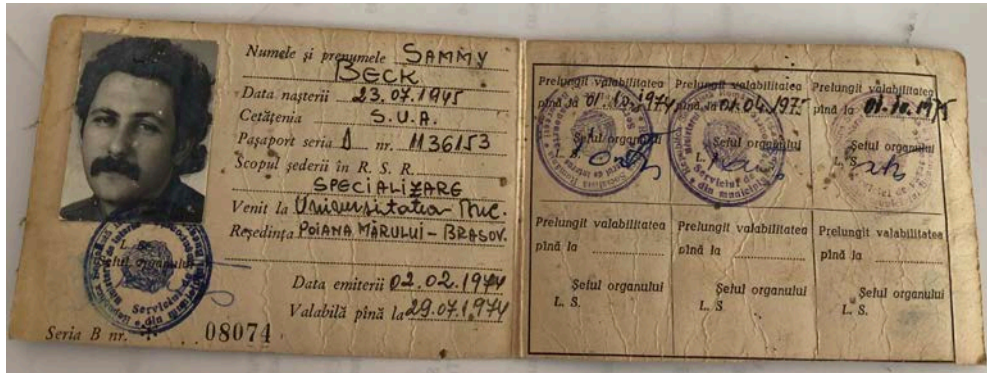 Numele și prenumele SAMMY
BECK
Data nașterii 23.07.1945
Cetățenia S.U.A.
Pașaport seria nr. 1136153
Scopul șederii în R. S. R.
SPECIALIZARE
Venit la Universitatea Buc.
Reședința POIANA MĂRULUI – BRAȘOV.
L. S.
Șeful organului
Data emiterii 02.02.1974
Valabilă pînă la 29.07.1974
Seria B nr. 08074
Prelungit valabilitatea
pînă la 01.10.1974
Șeful organului
Prelungit valabilitatea
pînă la 01.04.1975
Șeful organului
L.
Serviciul de
din municipiul
Prelungit valabilitatea
pînă la 01.10.1975
Șeful organului
L. S.
Prelungit valabilitatea
pînă la
Șeful organului
L. S.
Prelungit valabilitatea
pînă la
Șeful organului
L. S.
Prelungit valabilitatea
pînă la
Șeful organului
L. S.